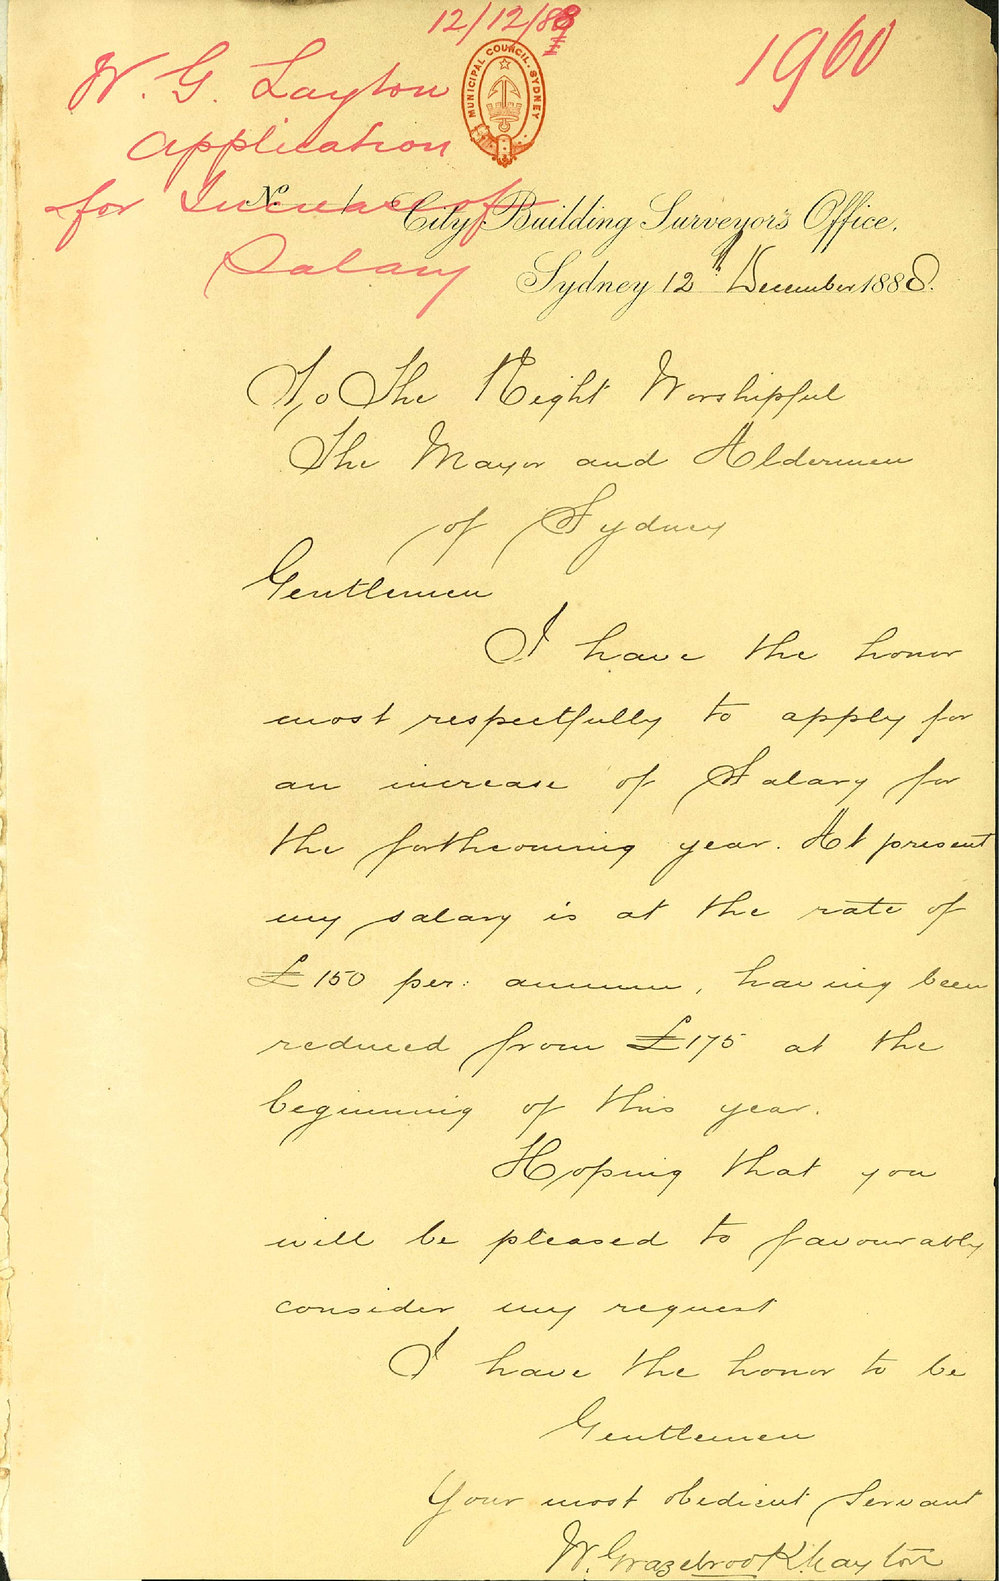 12/12/88
1960
W. G. Layton
Application
for Increase of
Salary
MUNICIPAL COUNCIL. SYDNEY
No. 1 City Building Surveyor's Office,
Sydney 12th December 1888.
To The Right Worshipful
The Mayor and Aldermen
of Sydney
Gentlemen
I have the honor
most respectfully to apply for
an increase of Salary for
the forthcoming year. At present
my salary is at the rate of
£150 per: annum, having been
reduced from £175 at the
beginning of this year.
Hoping that you
will be pleased to favourably
consider my request
I have the honor to be
Gentlemen
Your most obedient Servant
W. Grazebrook Layton